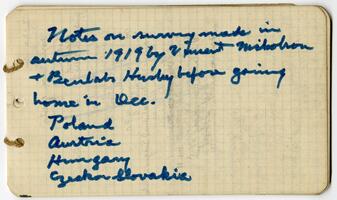 Notes on survey made in
autumn 1919 by Vincent Nicholson
+ Beulah Hurley before going
home in Dec.
Poland
Austria
Hungary
Czecko-Slovakia